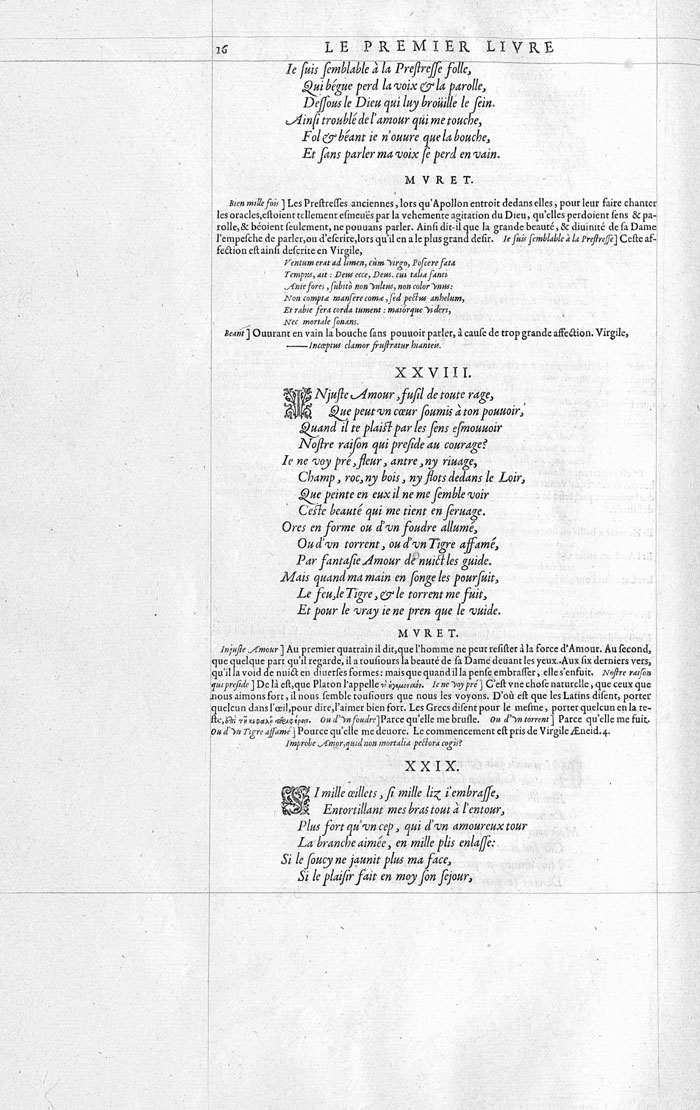 16 LE PREMIER LIVRE
Ie ſuis ſemblable à la Preſtreſſe folle,
Qui bégue perd la voix & la parolle,
Deſſous le Dieu qui luy broüille le ſein.
Ainſi troublé de l'amour qui me touche,
Fol & béant ie n'ouure que la bouche,
Et ſans parler ma voix ſe perd en vain.
MVRET.
Bien mille fois ] Les Preſtreſſes anciennes, lors qu'Apollon entroit dedans elles, pour leur faire chanter
les oracles, eſtoient tellement eſmeuës par la vehemente agitation du Dieu, qu'elles perdoient ſens & pa-
rolle, & béoient ſeulement, ne pouuans parler. Ainſi dit-il que la grande beauté, & diuinité de ſa Dame
l'empeſche de parler, ou d'eſcrire, lors qu'il en a le plus grand deſir. Ie ſuis ſemblable à la Preſtreſſe] Ceſte af-
fection eſt ainſi deſcrite en Virgile,
Ventum erat ad limen, cùm virgo, Poſcere fata
Tempus, ait : Deus ecce, Deus. cui talia fanti
Ante fores, ſubitò non vultus, non color vnus:
Non comptæ manſere comæ, ſed pectus anhelum,
Et rabie fera corda tument : maiorque videri,
Nec mortale ſonans.
Beant ] Ouurant en vain la bouche ſans pouuoir parler, à cauſe de trop grande affection. Virgile,
—Inceptus clamor fruſtratur hianteis.
XXVIII.
INjuſte Amour, fuſil de toute rage,
Que peut vn cœur ſoumis à ton pouuoir,
Quand il te plaiſt par les ſens eſmouuoir
Noſtre raiſon qui preſide au courage?
Ie ne voy pré, fleur, antre, ny riuage,
Champ, roc, ny bois, ny flots dedans le Loir,
Que peinte en eux il ne me ſemble voir
Ceſte beauté qui me tient en ſeruage.
Ores en forme ou d'vn foudre allumé,
Ou d'vn torrent, ou d'vn Tigre affamé,
Par fantaſie Amour de nuict les guide.
Mais quand ma main en ſonge les pourſuit,
Le feu, le Tigre, & le torrent me fuit,
Et pour le vray ie ne pren que le vuide.
MVRET.
Injuſte Amour ] Au premier quatrain il dit, que l'homme ne peut reſiſter à la force d'Amour. Au ſecond,
que quelque part qu'il regarde, il a touſiours la beauté de ſa Dame deuant les yeux. Aux ſix derniers vers,
qu'il la void de nuict en diuerſes formes: mais que quand il la penſe embraſſer, elle s'enfuit. Noſtre raiſon
qui preſide ] De là eſt, que Platon l'appelle Ie ne voy pré ] C'eſt vne choſe naturelle, que ceux que
nous aimons fort, il nous ſemble touſiours que nous les voyons. D'où eſt que les Latins diſent, porter
quelcun dans l'œil, pour dire, l'aimer bien fort. Les Grecs diſent pour le meſme, porter quelcun en la te-
ſte, Ou d'vn foudre] Parce qu'elle me bruſle. Ou d'vn torrent ] Parce qu'elle me fuit.
Ou d'vn Tigre affamé ] Pource qu'elle me deuore. Le commencement eſt pris de Virgile Æneid. 4.
Improbe Amor, quid non mortalia pectora cogis?
XXIX.
SI mille œillets, ſi mille liz i'embraſſe,
Entortillant mes bras tout à l'entour,
Plus fort qu'vn cep, qui d'vn amoureux tour
La branche aimée, en mille plis enlaſſe:
Si le ſoucy ne jaunit plus ma face,
Si le plaiſir fait en moy ſon ſejour,